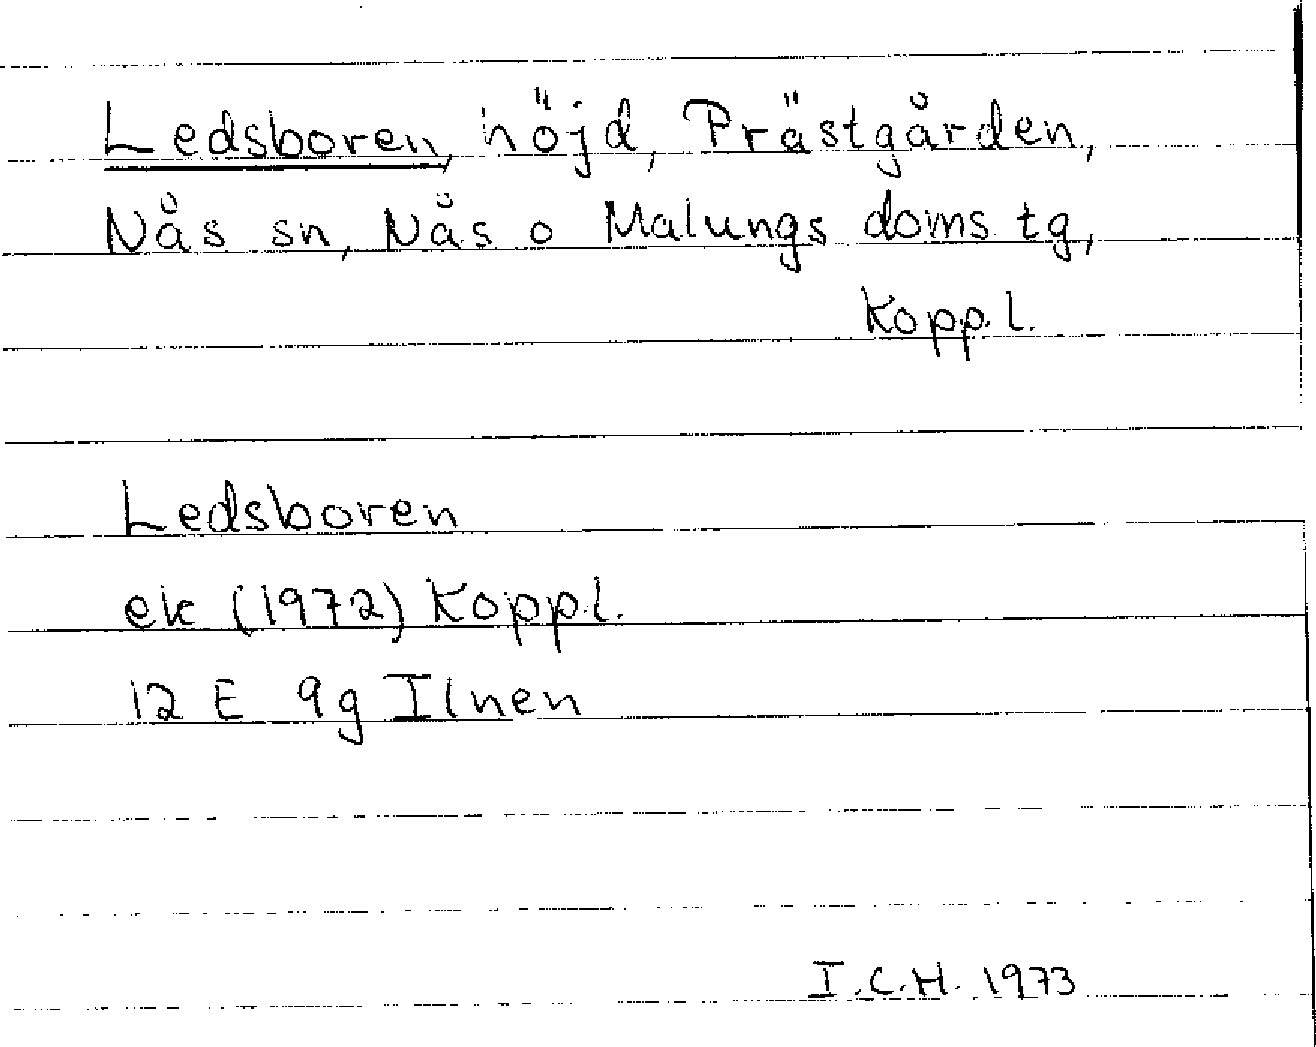 Ledsboren, höjd, Prästgården,
Nås sn, Nås o Malungs doms tg,
Kopp.l.
Ledsboren
ek (1972) Kopp.l.
12 E 9g Ilnen
I.C.H. 1973